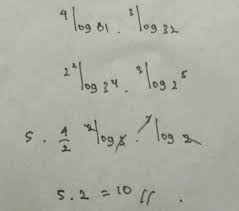 ⁴log 81 . ³log 32
2²log 3⁴ . ³log 2⁵
5 . 4/2 ²log 3 . ³log 2
5.2 = 10 //.